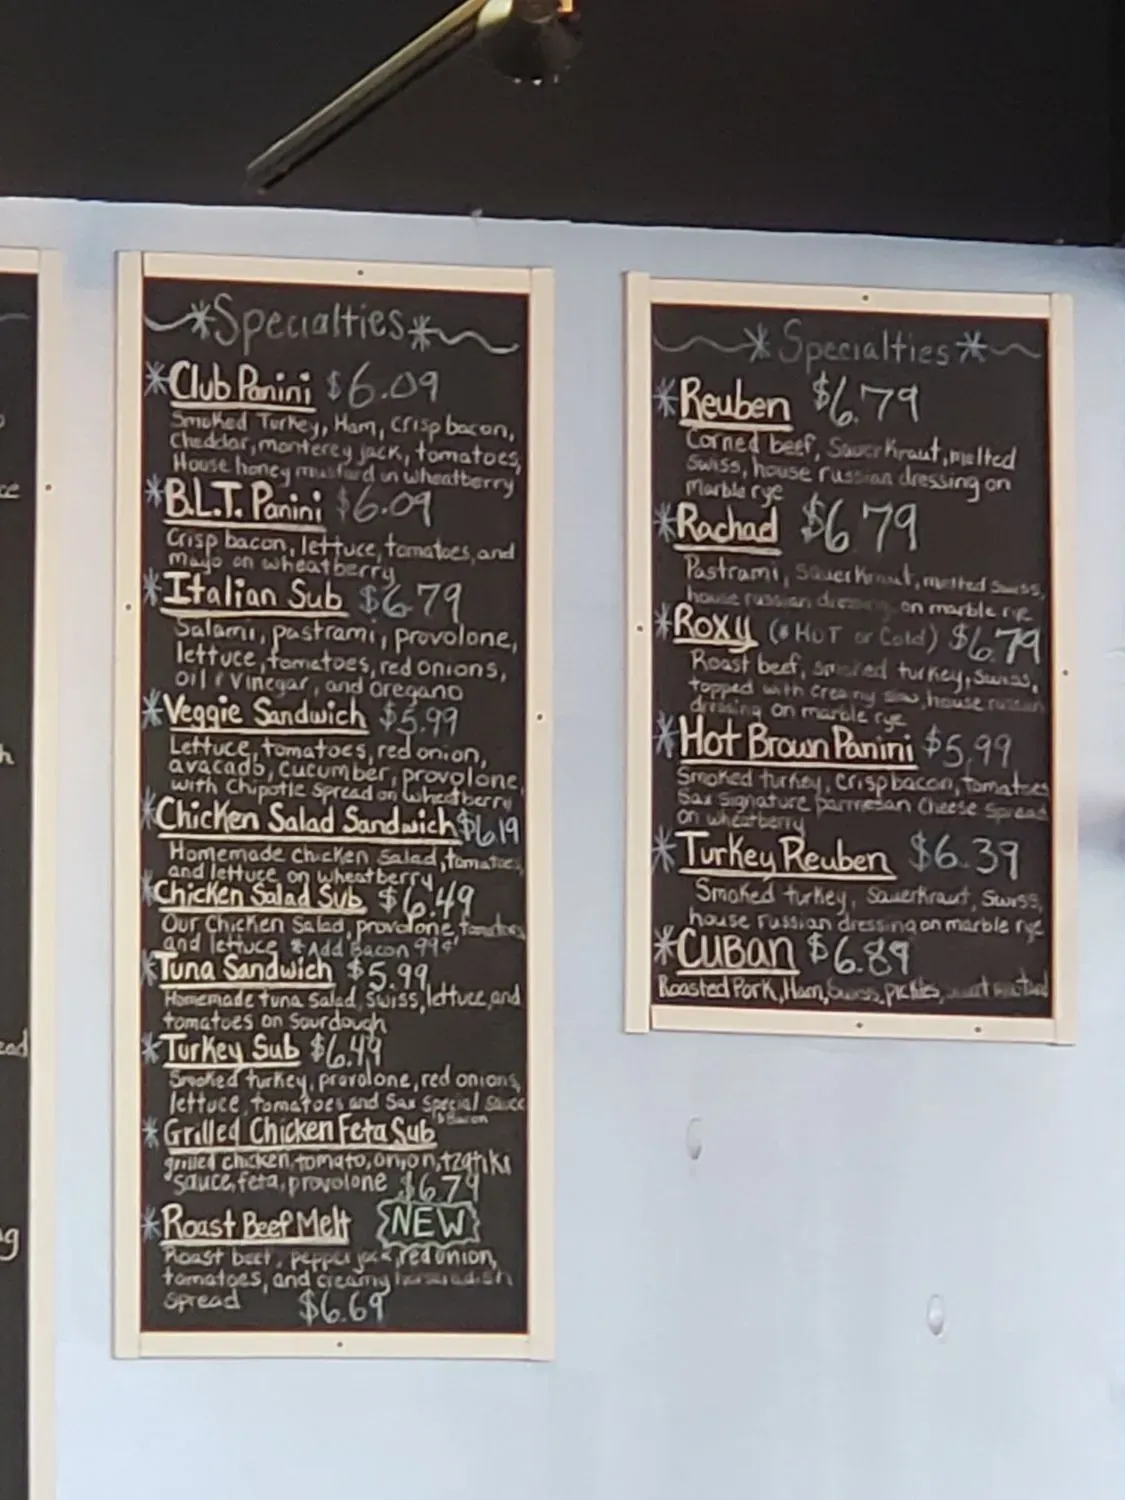 *Specialties*
*Club Panini $6.09
Smoked Turkey, Ham, crisp bacon,
cheddar, monterey jack, tomatoes,
House honey mustard on wheatberry
*B.L.T. Panini $6.09
Crisp bacon, lettuce, tomatoes, and
mayo on wheatberry
*Italian Sub $6.79
Salami, pastrami, provolone,
lettuce, tomatoes, red onions,
oil & vinegar, and oregano
*Veggie Sandwich $5.99
Lettuce, tomatoes, red onion,
avacado, cucumber, provolone,
with Chipotle spread on wheatberry
*Chicken Salad Sandwich $6.19
Homemade chicken salad, tomatoes,
and lettuce on wheatberry
*Chicken Salad Sub $6.49
Our Chicken Salad, provolone tomatoes
and lettuce *Add Bacon 99¢
*Tuna Sandwich $5.99
Homemade tuna salad, swiss, lettuce, and
tomatoes on Sourdough
*Turkey Sub $6.49
Smoked turkey, provolone, red onions,
lettuce, tomatoes and Sax Special Sauce
Bacon
*Grilled Chicken Feta Sub
grilled chicken, tomato, onion, tzatiki
sauce, feta, provolone $6.79
*Roast Beef Melt NEW
Roast beef, pepper jack, red onion,
tomatoes, and creamy horseradish
spread $6.69
*Specialties*
*Reuben $6.79
Corned beef, Sauerkraut, melted
swiss, house russian dressing on
marble rye
*Rachad $6.79
Pastrami, Sauerkraut, melted swiss,
house russian dressing on marble rye
*Roxy (* HOT or Cold) $6.79
Roast beef, smoked turkey, swiss,
topped with creamy slaw, house russian
dressing on marble rye
*Hot Brown Panini $5.99
Smoked turkey, crisp bacon, tomatoes
Sax signature parmesan cheese spread
on wheatberry
*Turkey Reuben $6.39
Smoked turkey, Sauerkraut, Swiss,
house russian dressing on marble rye
*CUBAN $6.89
Roasted Pork, Ham, Swiss, pickles,